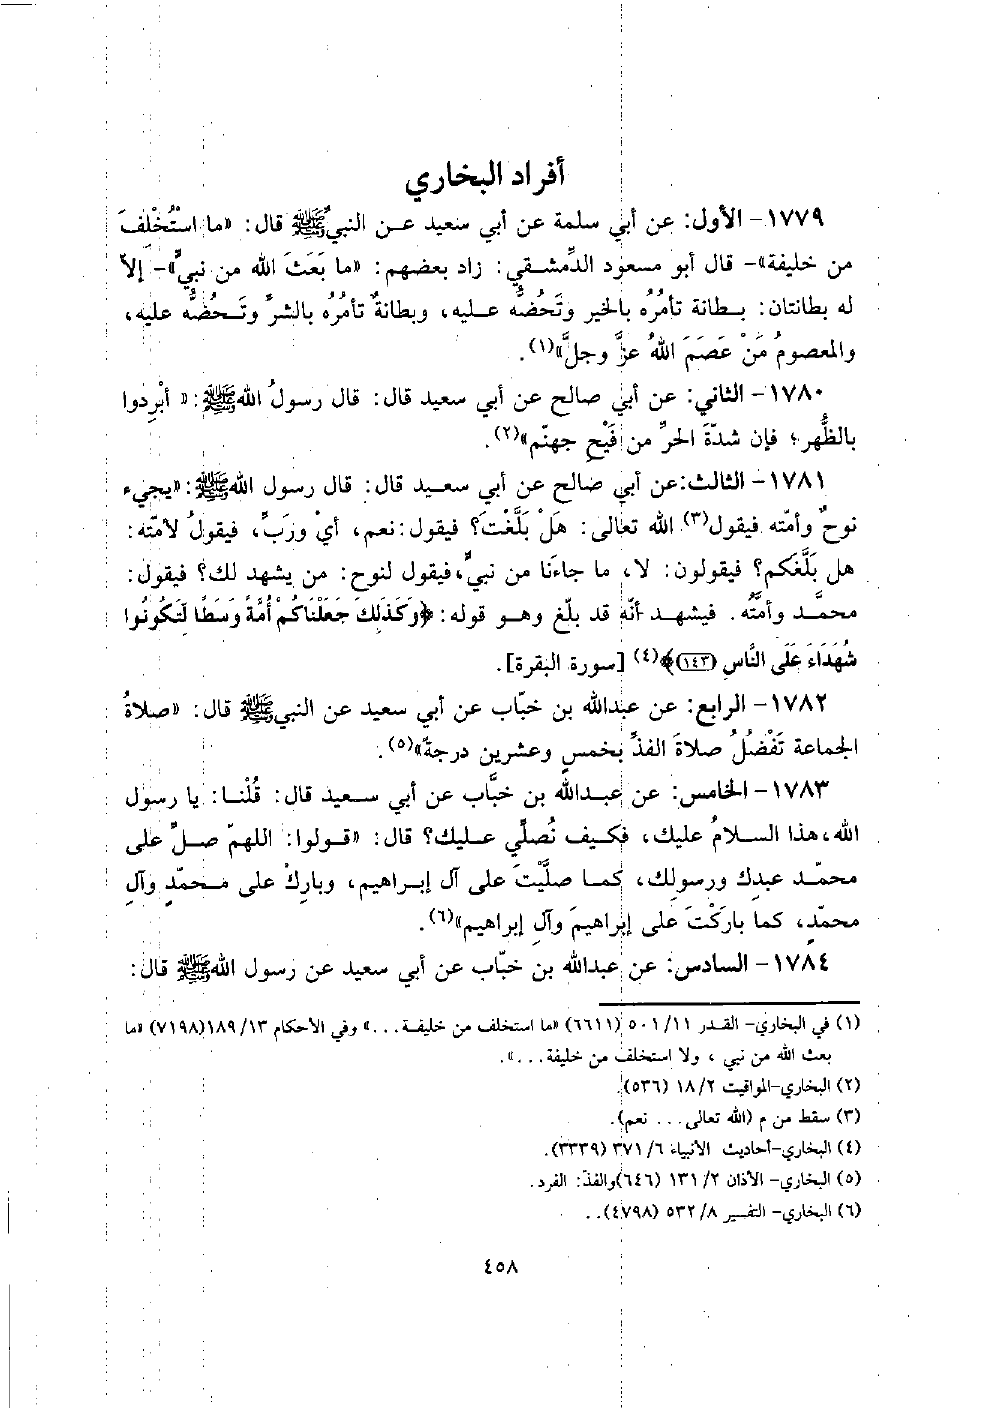 أفراد البخاري
١٧٧٩- الأول: عن أبي سلمة عن أبي سعيد عن النبي ﷺ قال: «ما اسْتُخْلِفَ
من خليفة»- قال أبو مسعود الدِّمشقي: زاد بعضهم: «ما بَعَثَ الله من نبيٍّ»- إلاّ
له بطانتان: بطانة تأمُرُه بالخير وتَحُضُّه عليه، وبطانةٌ تأمُرُه بالشرِّ وتَحُضُّه عليه،
والمعصومُ مَنْ عَصَمَ اللهُ عزَّ وجلَّ»(١).
١٧٨٠- الثاني: عن أبي صالح عن أبي سعيد قال: قال رسولُ الله ﷺ: « أبْرِدوا
بالظُّهر؛ فإن شدّةَ الحرِّ من فَيْحِ جهنّم»(٢).
١٧٨١- الثالث: عن أبي صالح عن أبي سعيد قال: قال رسول الله ﷺ: «يجيء
نوحٌ وأمّته فيقول(٣) الله تعالى: هَلْ بَلَّغْتَ؟ فيقول: نعم، أيْ ورَبِّ، فيقولُ لأمّته:
هل بَلَّغَكم؟ فيقولون: لا، ما جاءَنا من نبيٍّ، فيقول لنوح: من يشهد لك؟ فيقول:
محمَّد وأمّتُه. فيشهد أنّه قد بلّغ وهو قوله: ﴿وَكَذَلِكَ جَعَلْنَاكُمْ أُمَّةً وَسَطًا لِتَكُونُوا
شُهَدَاءَ عَلَى النَّاسِ (١٤٣)﴾(٤) [سورة البقرة].
١٧٨٢- الرابع: عن عبدالله بن خبّاب عن أبي سعيد عن النبي ﷺ قال: «صلاةُ
الجماعة تَفْضُلُ صلاةَ الفذِّ بخمسٍ وعشرين درجة»(٥).
١٧٨٣- الخامس: عن عبدالله بن خبَّاب عن أبي سعيد قال: قُلْنا: يا رسول
الله، هذا السلامُ عليك، فكيف نُصلِّي عليك؟ قال: «قولوا: اللهمّ صلِّ على
محمّد عبدِك ورسولِك، كما صلَّيْتَ على آل إبراهيم، وبارِكْ على محمّدٍ وآلِ
محمّدٍ، كما بارَكْتَ على إبراهيمَ وآلِ إبراهيم»(٦).
١٧٨٤- السادس: عن عبدالله بن خبّاب عن أبي سعيد عن رسول الله ﷺ قال:
(١) في البخاري- القدر ٥٠١/١١ (٦٦١١) «ما استخلف من خليفة...» وفي الأحكام ١٨٩/١٣(٧١٩٨) «ما
بعث الله من نبي ، ولا استخلف من خليفة...».
(٢) البخاري-المواقيت ١٨/٢ (٥٣٦).
(٣) سقط من م (الله تعالى... نعم).
(٤) البخاري-أحاديث الأنبياء ٣٧١/٦ (٣٣٣٩).
(٥) البخاري- الأذان ١٣١/٢ (٦٤٦)والفذّ: الفرد.
(٦) البخاري- التفسير ٥٣٢/٨ (٤٧٩٨)..
٤٥٨